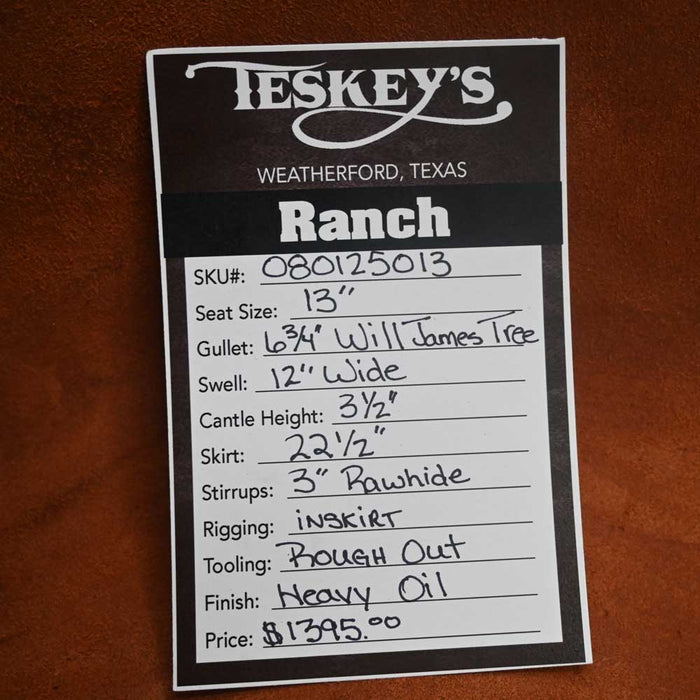 TESKEY'S
WEATHERFORD, TEXAS
Ranch
SKU#: 080125013
Seat Size: 13"
Gullet: 6 3/4" Will James Tree
Swell: 12" Wide
Cantle Height: 3 1/2"
Skirt: 22 1/2"
Stirrups: 3" Rawhide
Rigging: INSKIRT
Tooling: ROUGH Out
Finish: Heavy Oil
Price: $1395.00